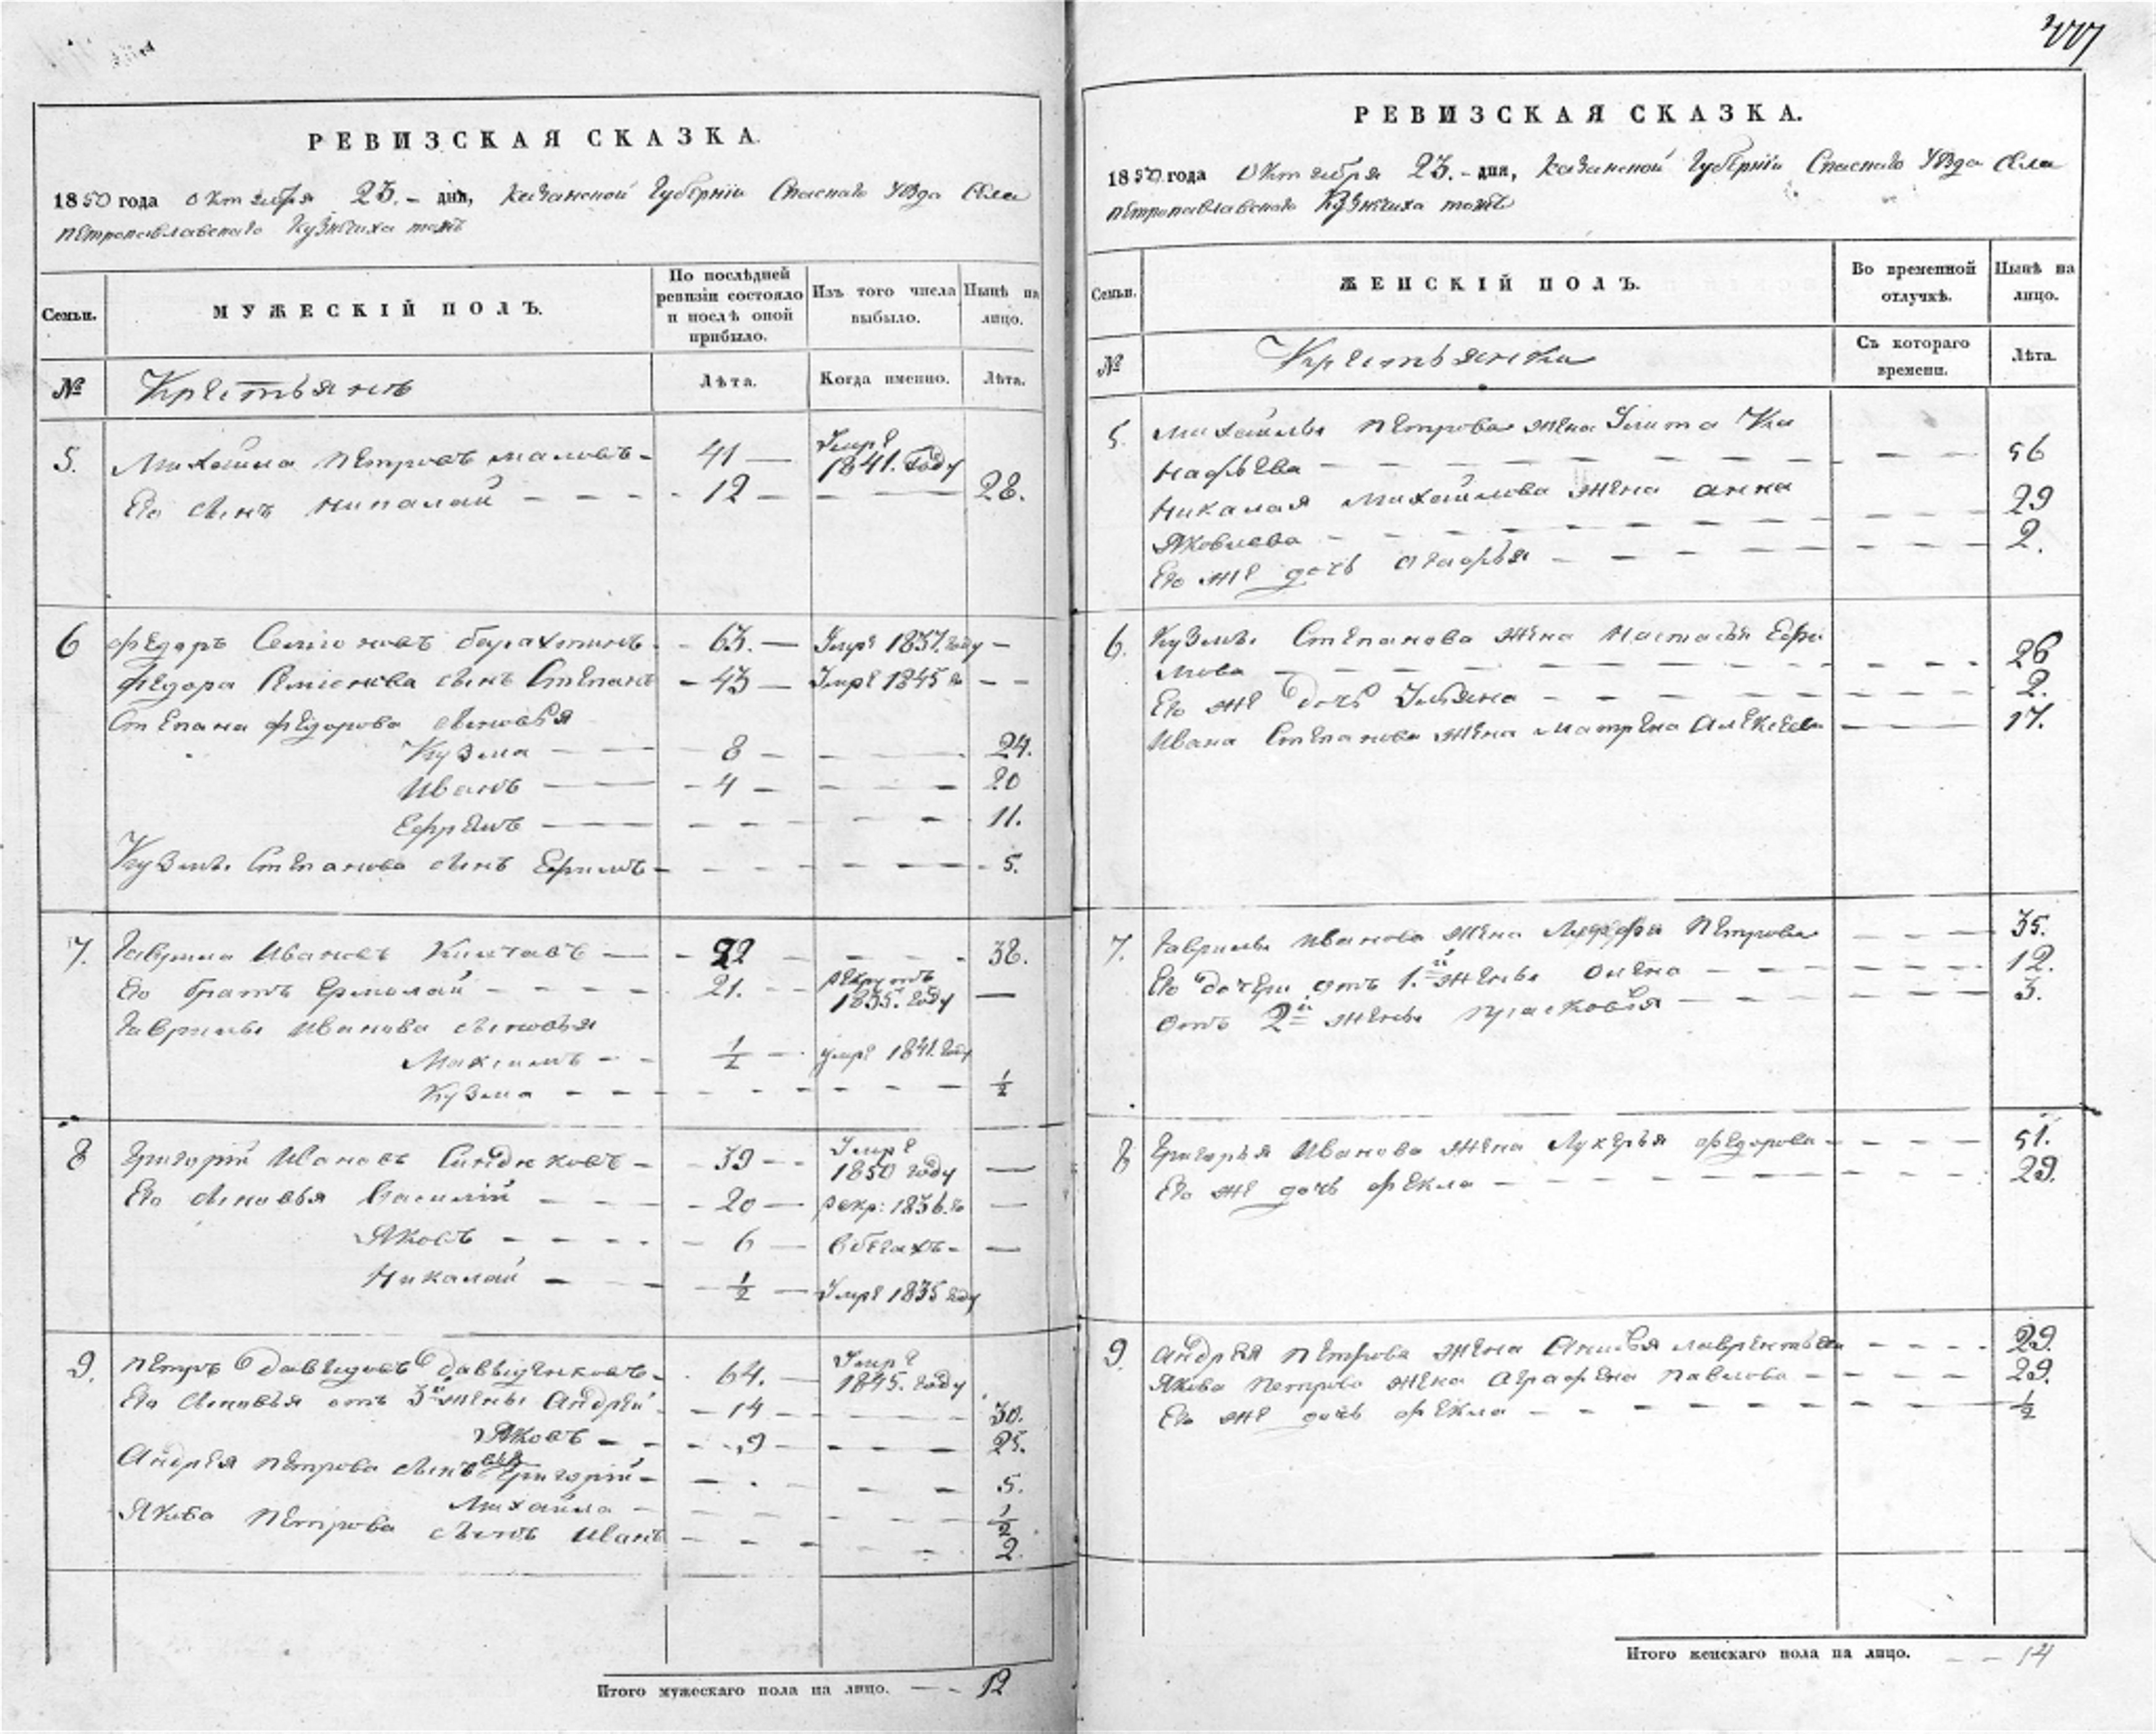 РЕВИЗСКАЯ СКАЗКА.
1850 года Октября 23.- дня, Казанской Губернiи Спаскаго Уѣзда Села
Петропавлавскаго Кузнечиха тожъ
Семьи.
МУЖЕСКIЙ ПОЛЪ.
По послѣдней ревизiи состояло и послѣ оной прибыло.
Изъ того числа выбыло.
Нынѣ на лицо.
№
Крестьянъ
Лѣта.
Когда именно.
Лѣта.
5. Михайла Петровъ Маловъ - 41 — Умре 1841. году
Его сынъ Никалай - - - 12 - - — 28.
6 Федоръ Семiоновъ - 63. — Умре 1837. году —
Федора Семiонова сынъ Степанъ - 43 — Умре 1845 го - -
Степана Федорова сыновья
Кузма — - 8 - - — 24.
Иванъ — - 4 - - - - 20
Ефремъ — - - - - - - 11.
Кузмы Степанова сынъ Ефимъ - - - - - - - 5.
7. Гаврила Ивановъ — - 22 - - - - 38.
Его братъ Ермолай - - - - 21. - - рекрутъ 1835. году —
Гаврилы Иванова сыновья
Максимъ - - 1/2 - - умре 1841. году
Кузма - - - - - - - - - 1/2
8 Григорiй Ивановъ Синдюковъ - - 39 - - Умре 1850 году —
Его сыновья Василiй - - - - 20 — рекр: 1836. го —
Яковъ - - - - - 6 — в бегахъ - —
Никалай - - - - 1/2 — Умре 1835 году
9. Петръ Давыдовъ Давыденковъ - 64. — Умре 1845. году
Его сыновья отъ 3й жены Андрей - - 14 - - - - 30.
Яковъ - - - - 9 - - - - 25.
Андрея Петрова сынъ Григорiй - - - - - - 5.
Михайла - - - - - 1/2
Якова Петрова сынъ Иванъ - - - - - 2.
Итого мужескаго пола на лицо. — - 12
РЕВИЗСКАЯ СКАЗКА.
1850 года Октября 23.- дня, Казанской Губернiи Спаскаго Уѣзда Села
Петропавлавскаго Кузнечиха тожъ
Семьи.
ЖЕНСКIЙ ПОЛЪ.
Во временной отлучкѣ.
Нынѣ на лицо.
№
Крестьянки
Съ котораго времени.
Лѣта.
5. Михайлы Петрова жена Улита Ки
нафьева - - - - - - - - 56
Никалая Михайлова жена Анна
Яковлева - - - - - - - 29
Его же дочь Агафья - - - - - - 2.
6. Кузмы Степанова жена Настасья Ефи
мова - - - - - - - - - 26
Его же дочь Ульяна - - - - - - 2.
Ивана Степанова жена Матрена Алексеева — - - 17.
7. Гаврилы Иванова жена Петрова - - - 35.
Его дочери отъ 1.й жены Олена - - - - - 12.
Отъ 2й жены Прасковья - - - - - 3.
8 Григорья Иванова жена Лукерья Федорова - - - - 51.
Его же дочь Фекла - - - - - - - 29.
9. Андрея Петрова жена Анисья Лаврентьева - - - - 29.
Якова Петрова жена Аграфена Павлова - - - - 29.
Его же дочь Фекла - - - - - - - 1/2
Итого женскаго пола на лицо. - - 14